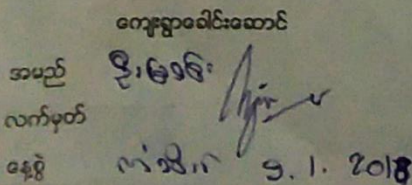 ကျေးရွာခေါင်းဆောင်
အမည် ဦးမြဝင်း
လက်မှတ်
နေ့စွဲ 9.1.2018